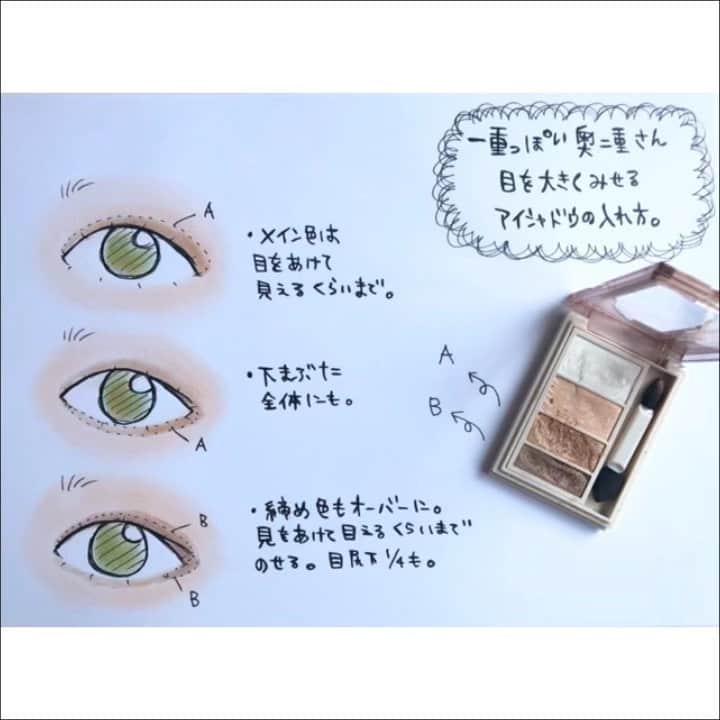 一重っぽい奥二重さん
目を大きくみせる
アイシャドウの入れ方。
A
・メイン色は
目をあけて
見えるくらいまで。
・下まぶた
全体にも。
A
A
B
B
・締め色もオーバーに。
見をあけて目えるくらいまで
のせる。目尻下1/4も。
B